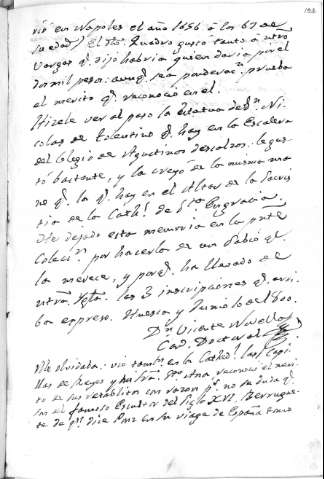 rió en Napoles el año 1656 á los 67 de
su edad) El tal Quadro gustó tanto á otro
Vargas qe. dijo habria quien daria por el
dos mil pesos: aunqe. sea ponderacn. prueba
el merito qe. reconoció en el.
Hizele ver al paso la Estatua de Sn. Ni-
colas de Tolentino qe. hay en la Escalera
del Colegio de Agustinos descalzos. le gus-
tó bastante, y la creyó de la misma ma-
no qe. la qe. hay en el Altar de la Sacris-
tia de la Cathl. de Sta. Engracia.
He dejado esta memoria en la pnte
Coleccn. por hacerla de un Sabio qe.
la merece, y porqe. ha llamado de
las 3 inscripciones qe. arri-
ba expreso. Huesca y Junio
Dn. Vicente Novellas
Can. Doctoral
Me olvidaba: vió tambn. en la Cathedl. las Capi-
llas de Reyes y Sta. Ana reconoció el meri-
to de sus retablitos con razon pe. no se duda qe.
son del famoso Escultor del Siglo XVI. Berrugue-
te de qn. dice Ponz en su viage de España